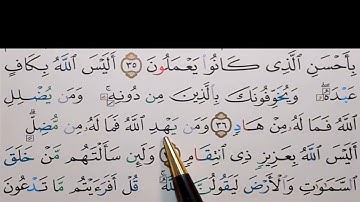 بِأَحْسَنِ ٱلَّذِى كَانُوا۟ يَعْمَلُونَ ٣٥ أَلَيْسَ ٱللَّهُ بِكَافٍ
عَبْدَهُۥ ۖ وَيُخَوِّفُونَكَ بِٱلَّذِينَ مِن دُونِهِۦ ۚ وَمَن يُضْلِلِ
ٱللَّهُ فَمَا لَهُۥ مِنْ هَادٍ ٣٦ وَمَن يَهْدِ ٱللَّهُ فَمَا لَهُۥ مِن مُّضِلٍّ ۗ
أَلَيْسَ ٱللَّهُ بِعَزِيزٍ ذِى ٱنتِقَامٍ ٣٧ وَلَئِن سَأَلْتَهُم مَّنْ خَلَقَ
ٱلسَّمَٰوَٰتِ وَٱلْأَرْضَ لَيَقُولُنَّ ٱللَّهُ ۚ قُلْ أَفَرَءَيْتُم مَّا تَدْعُونَ